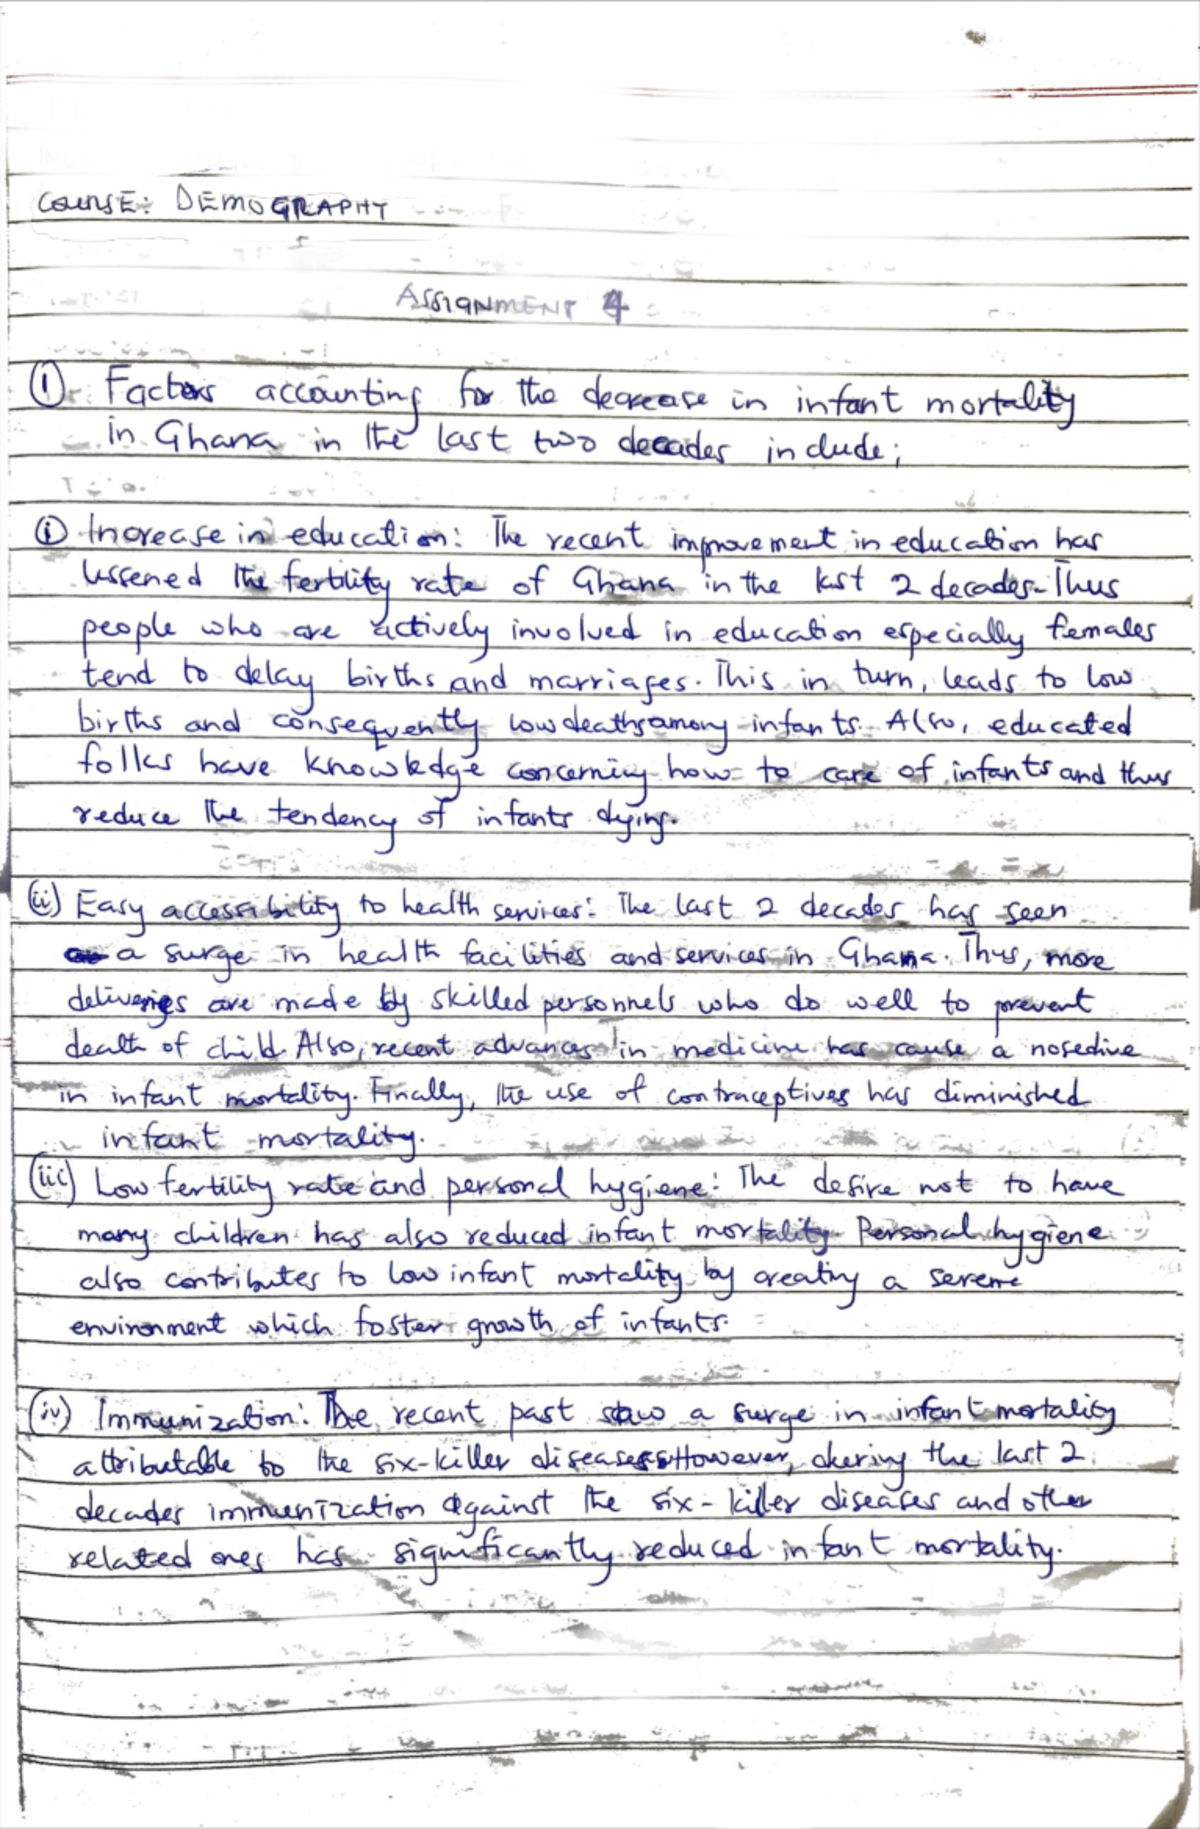 COURSE: DEMOGRAPHY
ASSIGNMENT 4
① Factors accounting for the decrease in infant mortality
in Ghana in the last two decades include;
ⓘ Increase in education: The recent improvement in education has
lessened the fertility rate of Ghana in the last 2 decades. Thus
people who are actively involved in education especially females
tend to delay births and marriages. This in turn, leads to low
births and consequently low deaths among infants. Also, educated
folks have knowledge concerning how to care of infants and thus
reduce the tendency of infants dying.
(ii) Easy accessibility to health services: The last 2 decades has seen
a surge in health facilities and services in Ghana. Thus, more
deliveries are made by skilled personnels who do well to prevent
death of child. Also, recent advances in medicine has cause a nosedive
in infant mortality. Finally, the use of contraceptives has diminished
infant mortality.
(iii) Low fertility rate and personal hygiene: The desire not to have
many children has also reduced infant mortality. Personal hygiene
also contributes to low infant mortality by creating a serene
environment which foster growth of infants.
(iv) Immunization: The recent past saw a surge in infant mortality
attributable to the six-killer diseases. However, during the last 2
decades immunization against the six-killer diseases and other
related ones has significantly reduced infant mortality.